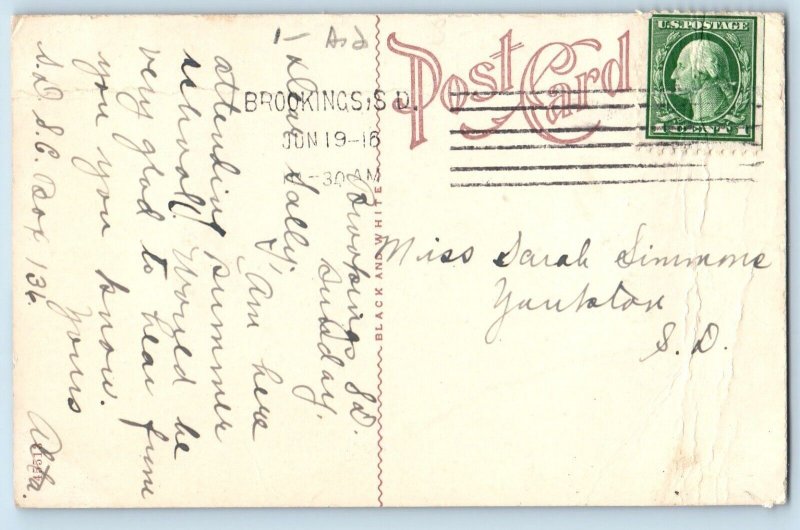 1- And
Post Card
U.S. POSTAGE
1 CENT 1
BROOKINGS, S.D.
JUN 19-16
-30 AM
BLACK AND WHITE
Brookings S.D.
Sunday.
Dear Sally:
I am here
attending summer
school. Would be
very glad to hear from
you you know.
Yours
Alta.
S.D. S.C. Box 136.
Miss Sarah Simmons
Yankton
S.D.